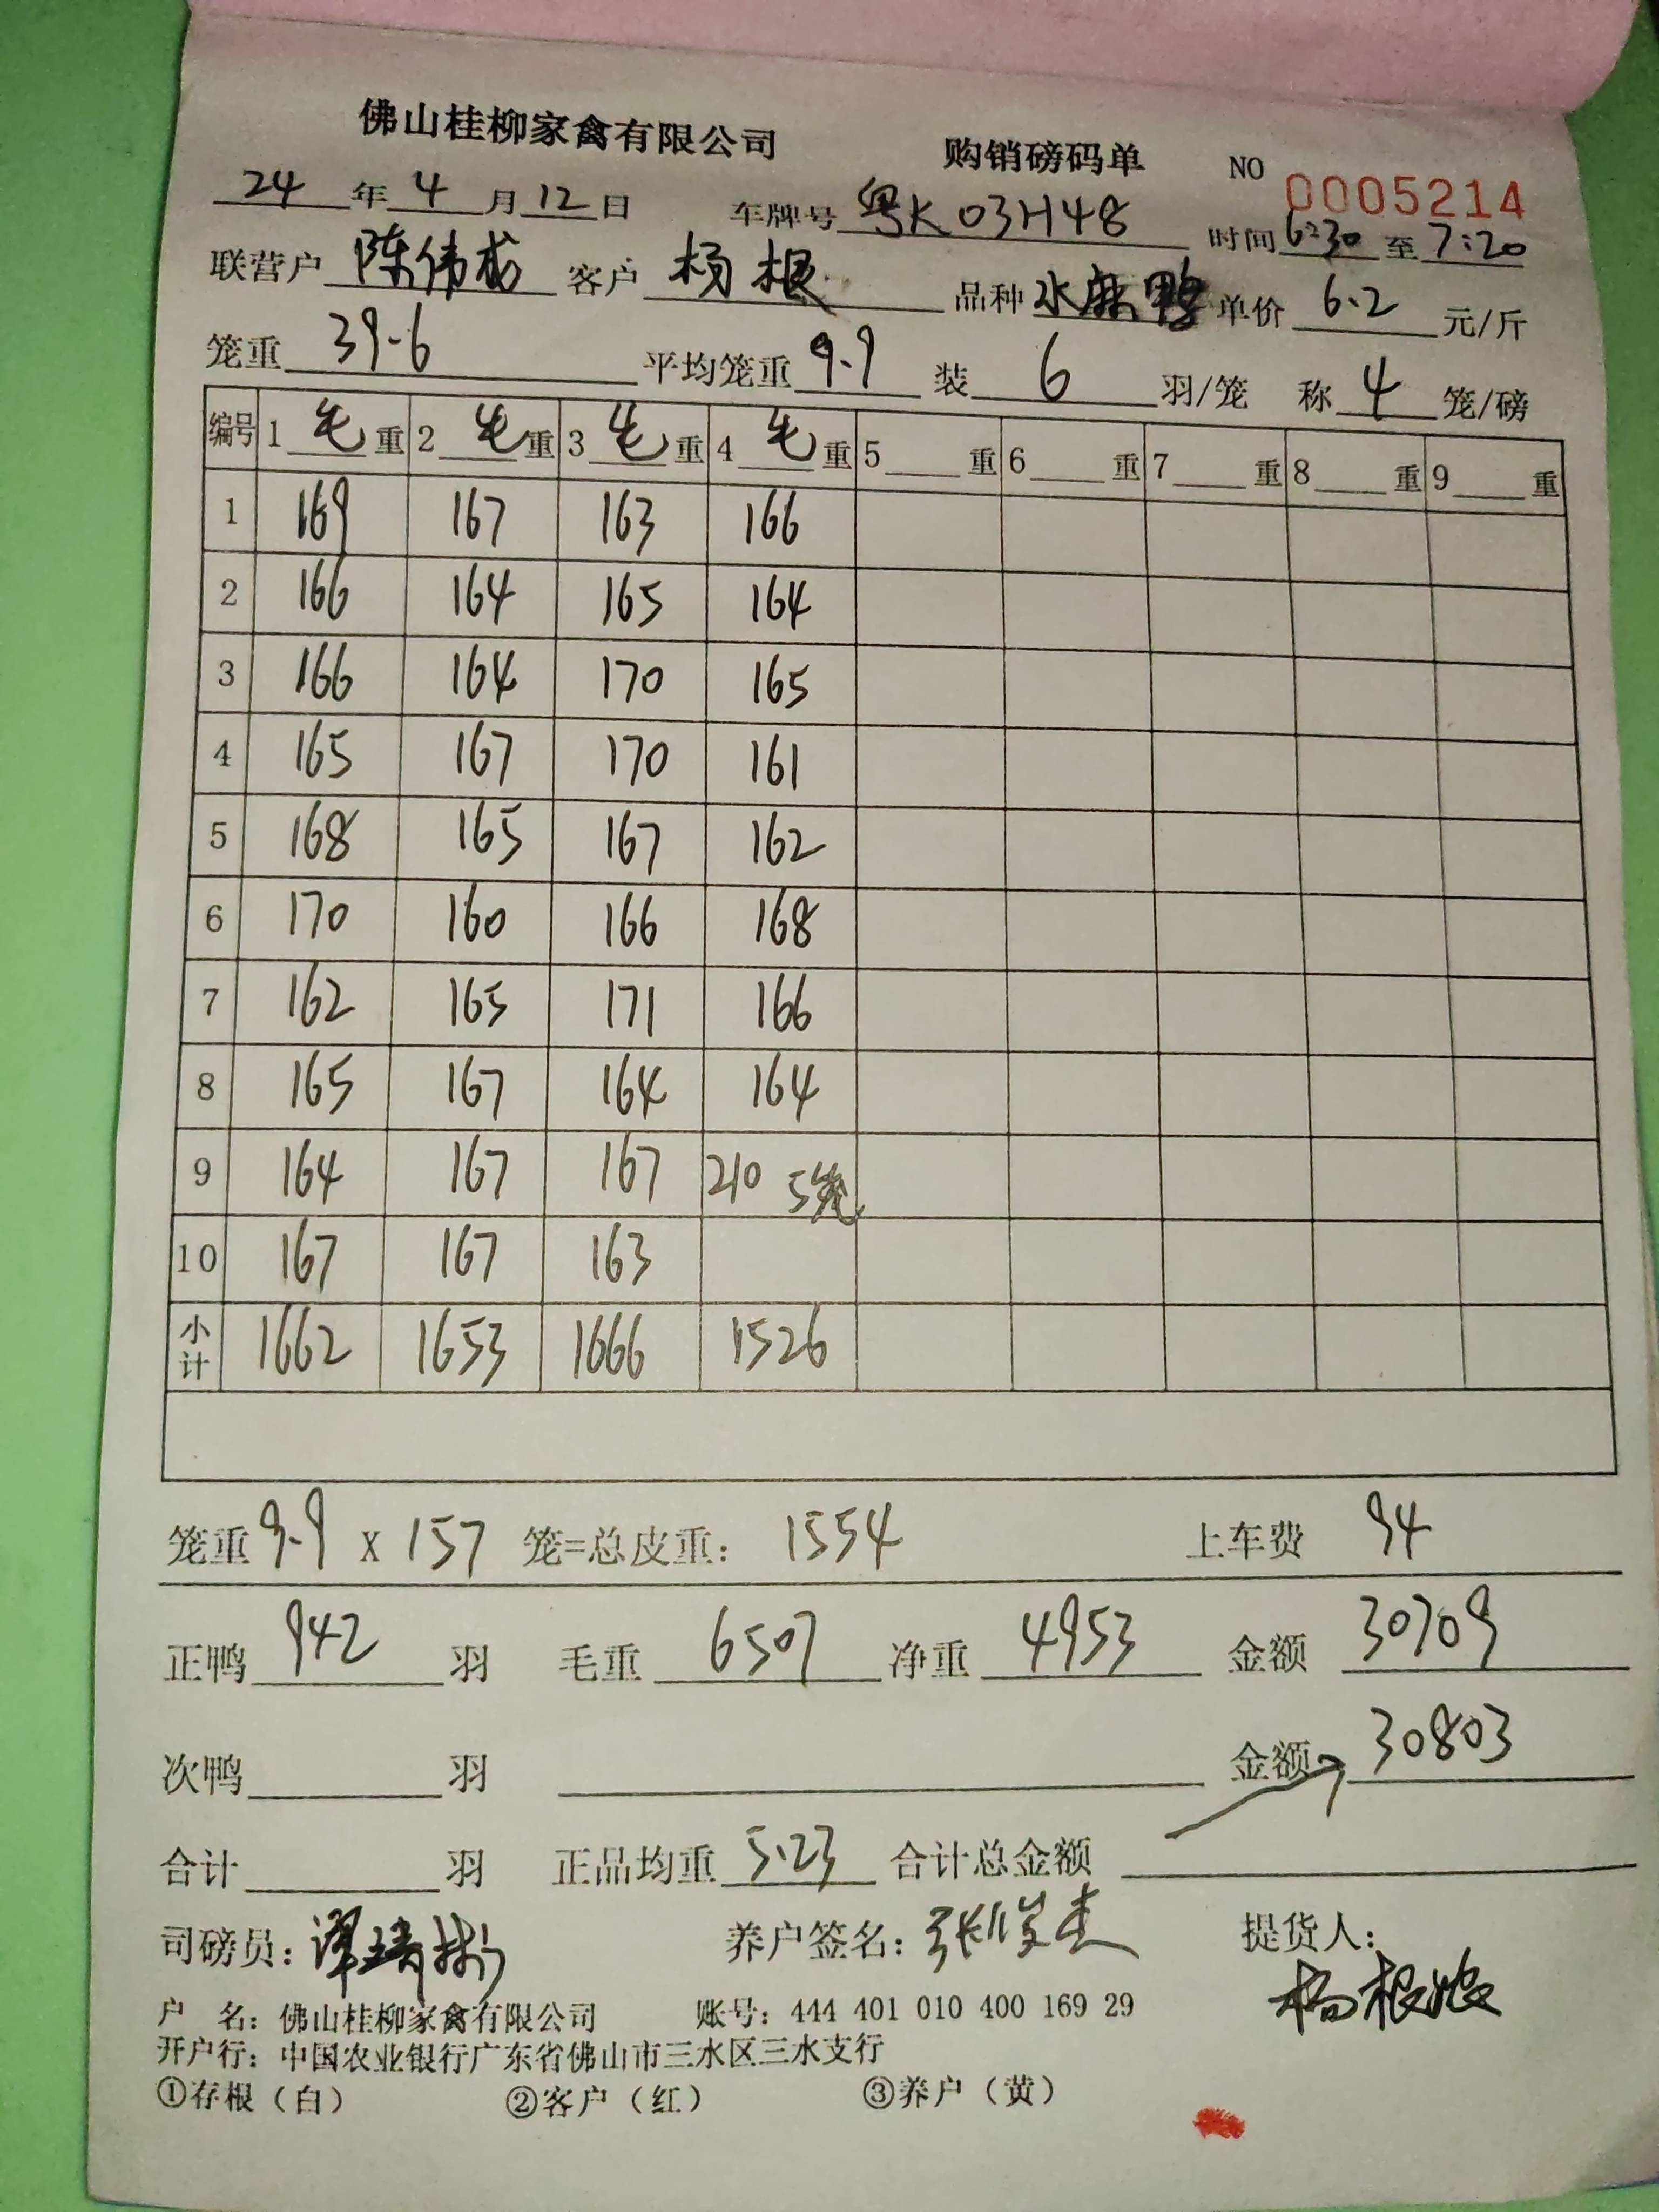 佛山桂柳家禽有限公司 购销磅码单 NO 0005214
24年4月12日 车牌号 粤K03H48 时间 6:30 至 7:20
联营户 陈伟成 客户 杨根 品种 水麻鸭 单价 6.2 元/斤
笼重 39.6 平均笼重 9.9 装 6 羽/笼 称 4 笼/磅
编号 1 毛 重 2 毛 重 3 毛 重 4 毛 重 5 重 6 重 7 重 8 重 9 重
1 169 167 163 166
2 166 164 165 164
3 166 164 170 165
4 165 167 170 161
5 168 165 167 162
6 170 160 166 168
7 162 165 171 166
8 165 167 164 164
9 164 167 167 210 5笼
10 167 167 163
小计 1662 1653 1666 1526
笼重 9.9 X 157 笼=总皮重: 1554 上车费 94
正鸭 942 羽 毛重 6507 净重 4953 金额 30709
次鸭 羽 金额 30803
合计 羽 正品均重 5.23 合计总金额
司磅员: 养户签名: 张俊杰 提货人:
户 名: 佛山桂柳家禽有限公司 账号: 444 401 010 400 169 29
开户行: 中国农业银行广东省佛山市三水区三水支行
①存根(白) ②客户(红) ③养户(黄)